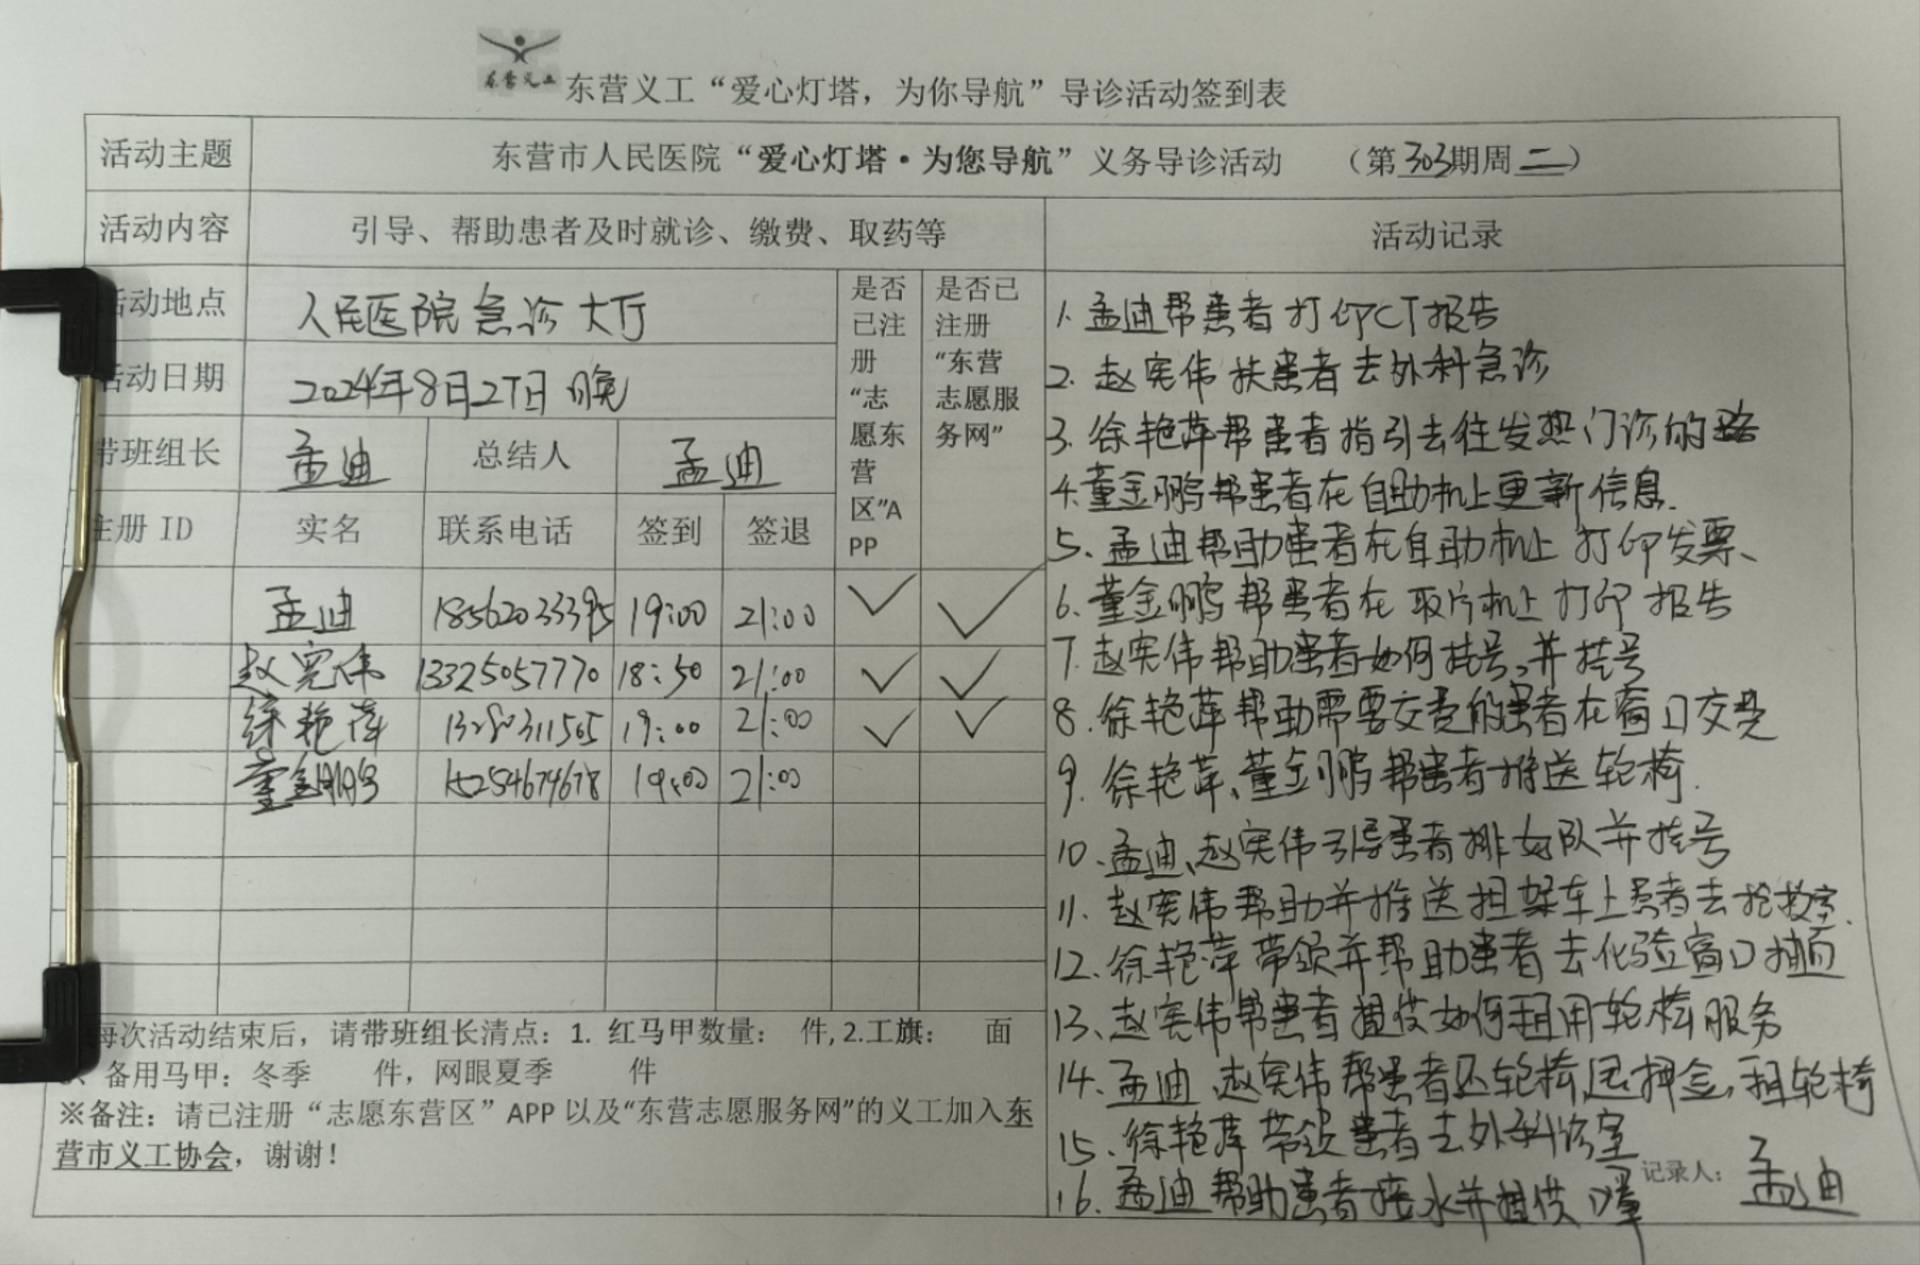 东营义工 东营义工“爱心灯塔，为你导航”导诊活动签到表
活动主题 东营市人民医院“爱心灯塔·为您导航”义务导诊活动 （第303期周二）
活动内容 引导、帮助患者及时就诊、缴费、取药等 活动记录
活动地点 人民医院急诊大厅
活动日期 2024年8月27日晚
带班组长 孟迪 总结人 孟迪
是否已注册“志愿东营区”APP
是否已注册“东营志愿服务网”
注册 ID 实名 联系电话 签到 签退
孟迪 18562033395 19:00 21:00 ✓ ✓
赵宪伟 13325057770 18:50 21:00 ✓ ✓
徐艳萍 13280311565 19:00 21:00 ✓ ✓
董金鹏 15254674678 19:00 21:00
每次活动结束后，请带班组长清点：1. 红马甲数量： 件, 2.工旗： 面
备用马甲：冬季 件，网眼夏季 件
※备注：请已注册“志愿东营区”APP 以及“东营志愿服务网”的义工加入东
营市义工协会，谢谢！
1. 孟迪帮患者打印CT报告
2. 赵宪伟扶患者去外科急诊
3. 徐艳萍帮患者指引去往发热门诊的路
4. 董金鹏帮患者在自助机上更新信息.
5、孟迪帮助患者在自助机上打印发票、
6. 董金鹏帮患者在取片机上打印报告
7. 赵宪伟帮助患者如何挂号，并挂号
8. 徐艳萍帮助需要交费的患者在窗口交费
9. 徐艳萍、董金鹏帮患者推送轮椅.
10. 孟迪、赵宪伟引导患者排好队并挂号
11. 赵宪伟帮助并推送担架车上患者去抢救室.
12. 徐艳萍带领并帮助患者去化验窗口抽血
13、赵宪伟帮患者提供如何租用轮椅服务
14. 孟迪、赵宪伟帮患者还轮椅，退押金，租轮椅
15. 徐艳萍带领患者去外科诊室
16. 孟迪帮助患者接水并提供口罩
记录人：孟迪